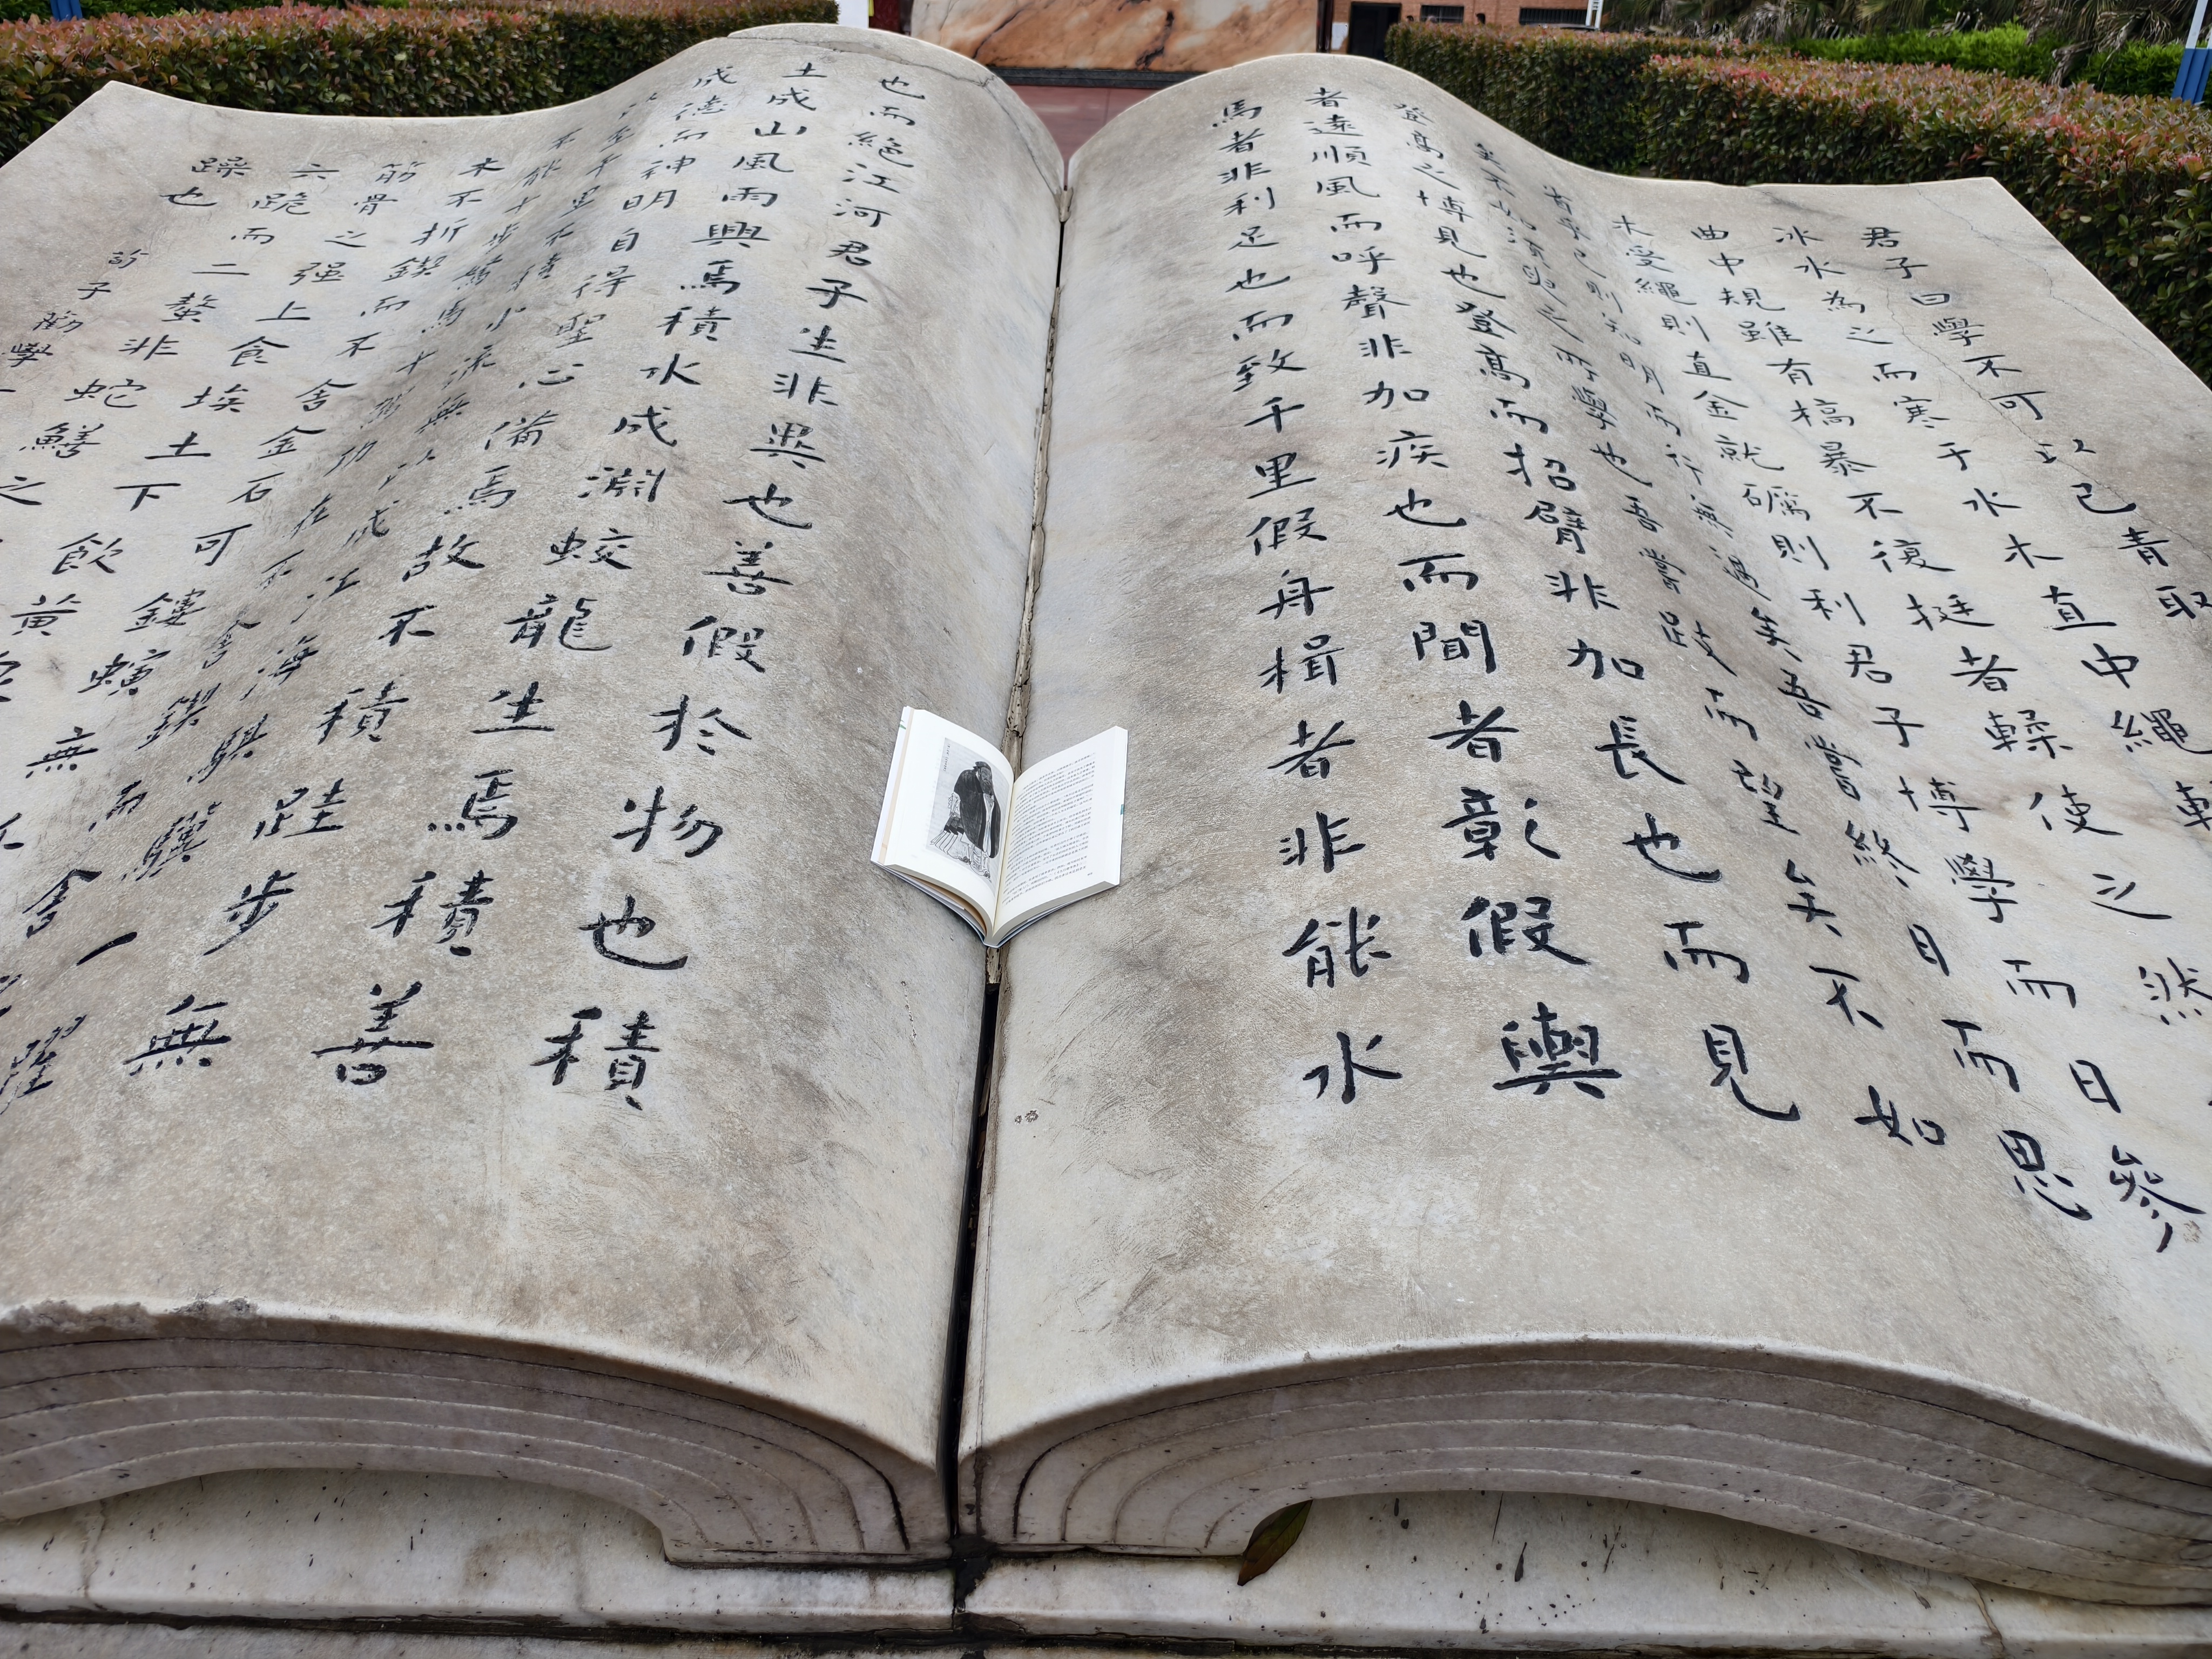 君子曰學不可以已青取
冰水為之而寒于水木直中繩
曲中規雖有槁暴不復挺者輮使之然
木受繩則直金就礪則利君子博學而日參
省乎己則知明而行無過矣吾嘗終日而思
矣不如須臾之所學也吾嘗跂而望矣不如
登高之博見也登高而招臂非加長也而見
者遠順風而呼聲非加疾也而聞者彰假輿
馬者非利足也而致千里假舟楫者非能水
也而絕江河君子生非異也善假於物也積
土成山風雨興焉積水成淵蛟龍生焉積善
成德而神明自得聖心備焉故不積跬步無
以至千里不積小流無以成江海騏驥一躍
不能十步駑馬十駕功在不舍鍥而舍
木不折鍥而不舍金石可鏤螾無
筋骨之强上食埃土下飲黃
六跪而二螯非蛇鱔之
躁也
荀子勸學